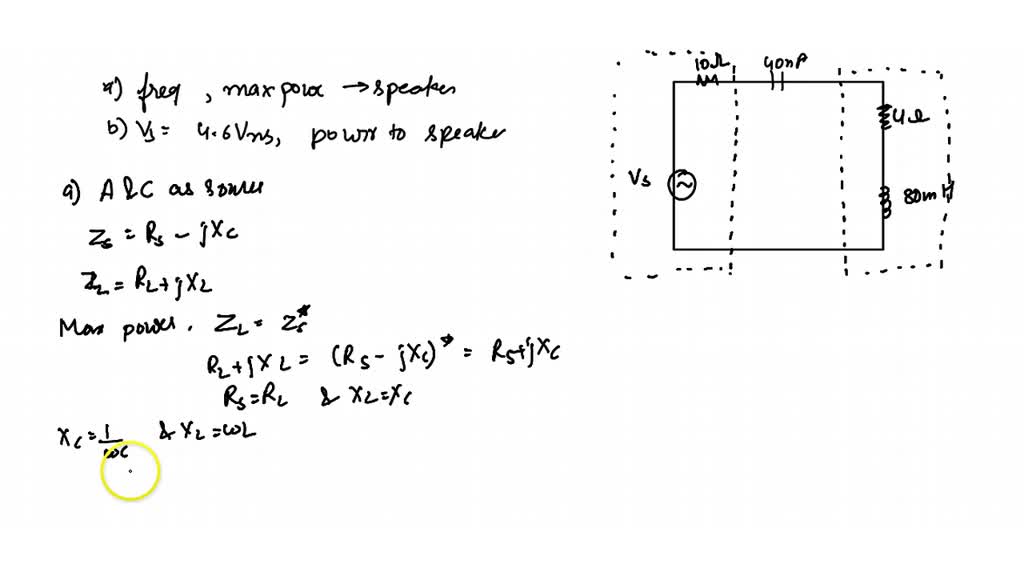 a) freq, max powe → speaker
b) Vs = 4.6Vrms, power to speaker
a) A & C as source
Zs = Rs - jXc
ZL = RL + jXL
Max power. ZL = Zs*
RL + jXL = (Rs - jXc)* = Rs + jXc
Rs = RL & XL = Xc
Xc = 1/ωC & XL = ωL
10Ω 40nF
4Ω
Vs
80mH